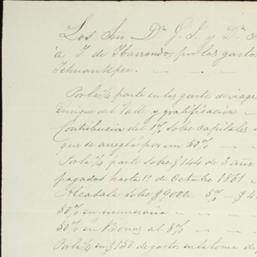 Los Sres Dn J. J. y Dn
á J. de Ibarrondo, por los gastos
Tehuantepec.
Por la ½ parte en los gastos de viage
Enrique del Valle y gratificacion
Contribucion del 1% sobre capitales
que se arregló por un 50%
Por la ½ parte sobre $144 de 3 años
pagados hasta 1º de Octubre 1861
Alcabala sobre $9000. 5% $4
50% en numerario
50% en Bonos al 8%
Por la ½ en $150 de gastos en la toma de